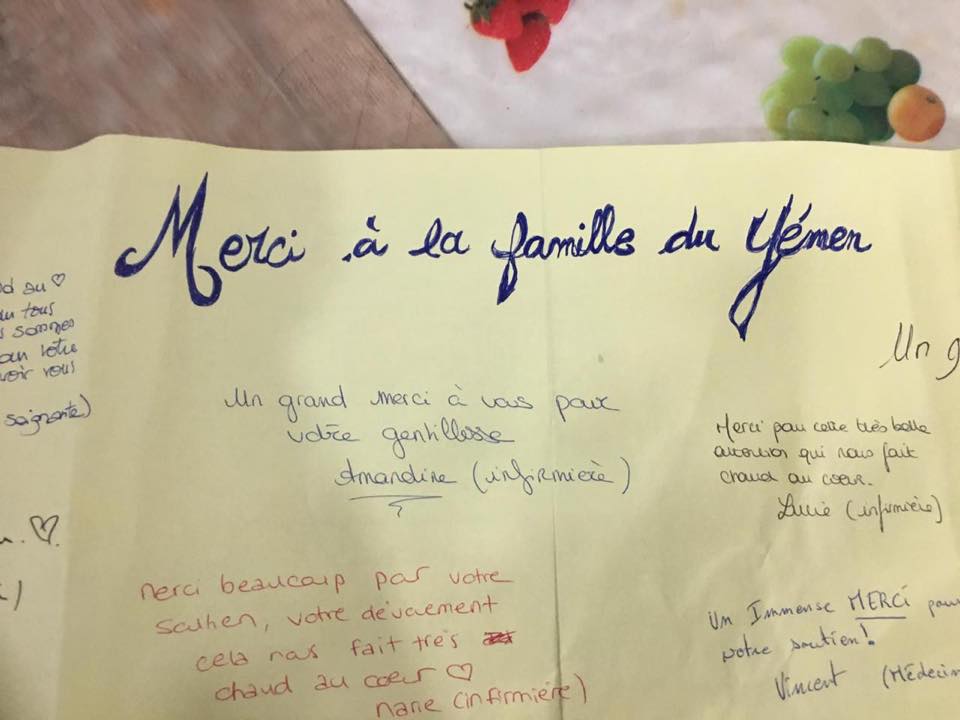 Merci à la famille du Yémen
au ♡
tous
sommes
votre
vous
saignante)
♡
Un grand merci à vous pour
votre gentillesse
Amandine (infirmière)
merci beaucoup par votre
soutien, votre dévouement
cela nas fait très
chaud au cœur ♡
marie (infirmière)
Un g
Merci pour cette très belle
attention qui nous fait
chaud au cœur.
Lucie (infirmière)
Un Immense MERCI pour
votre soutien!
Vincent (Médecin